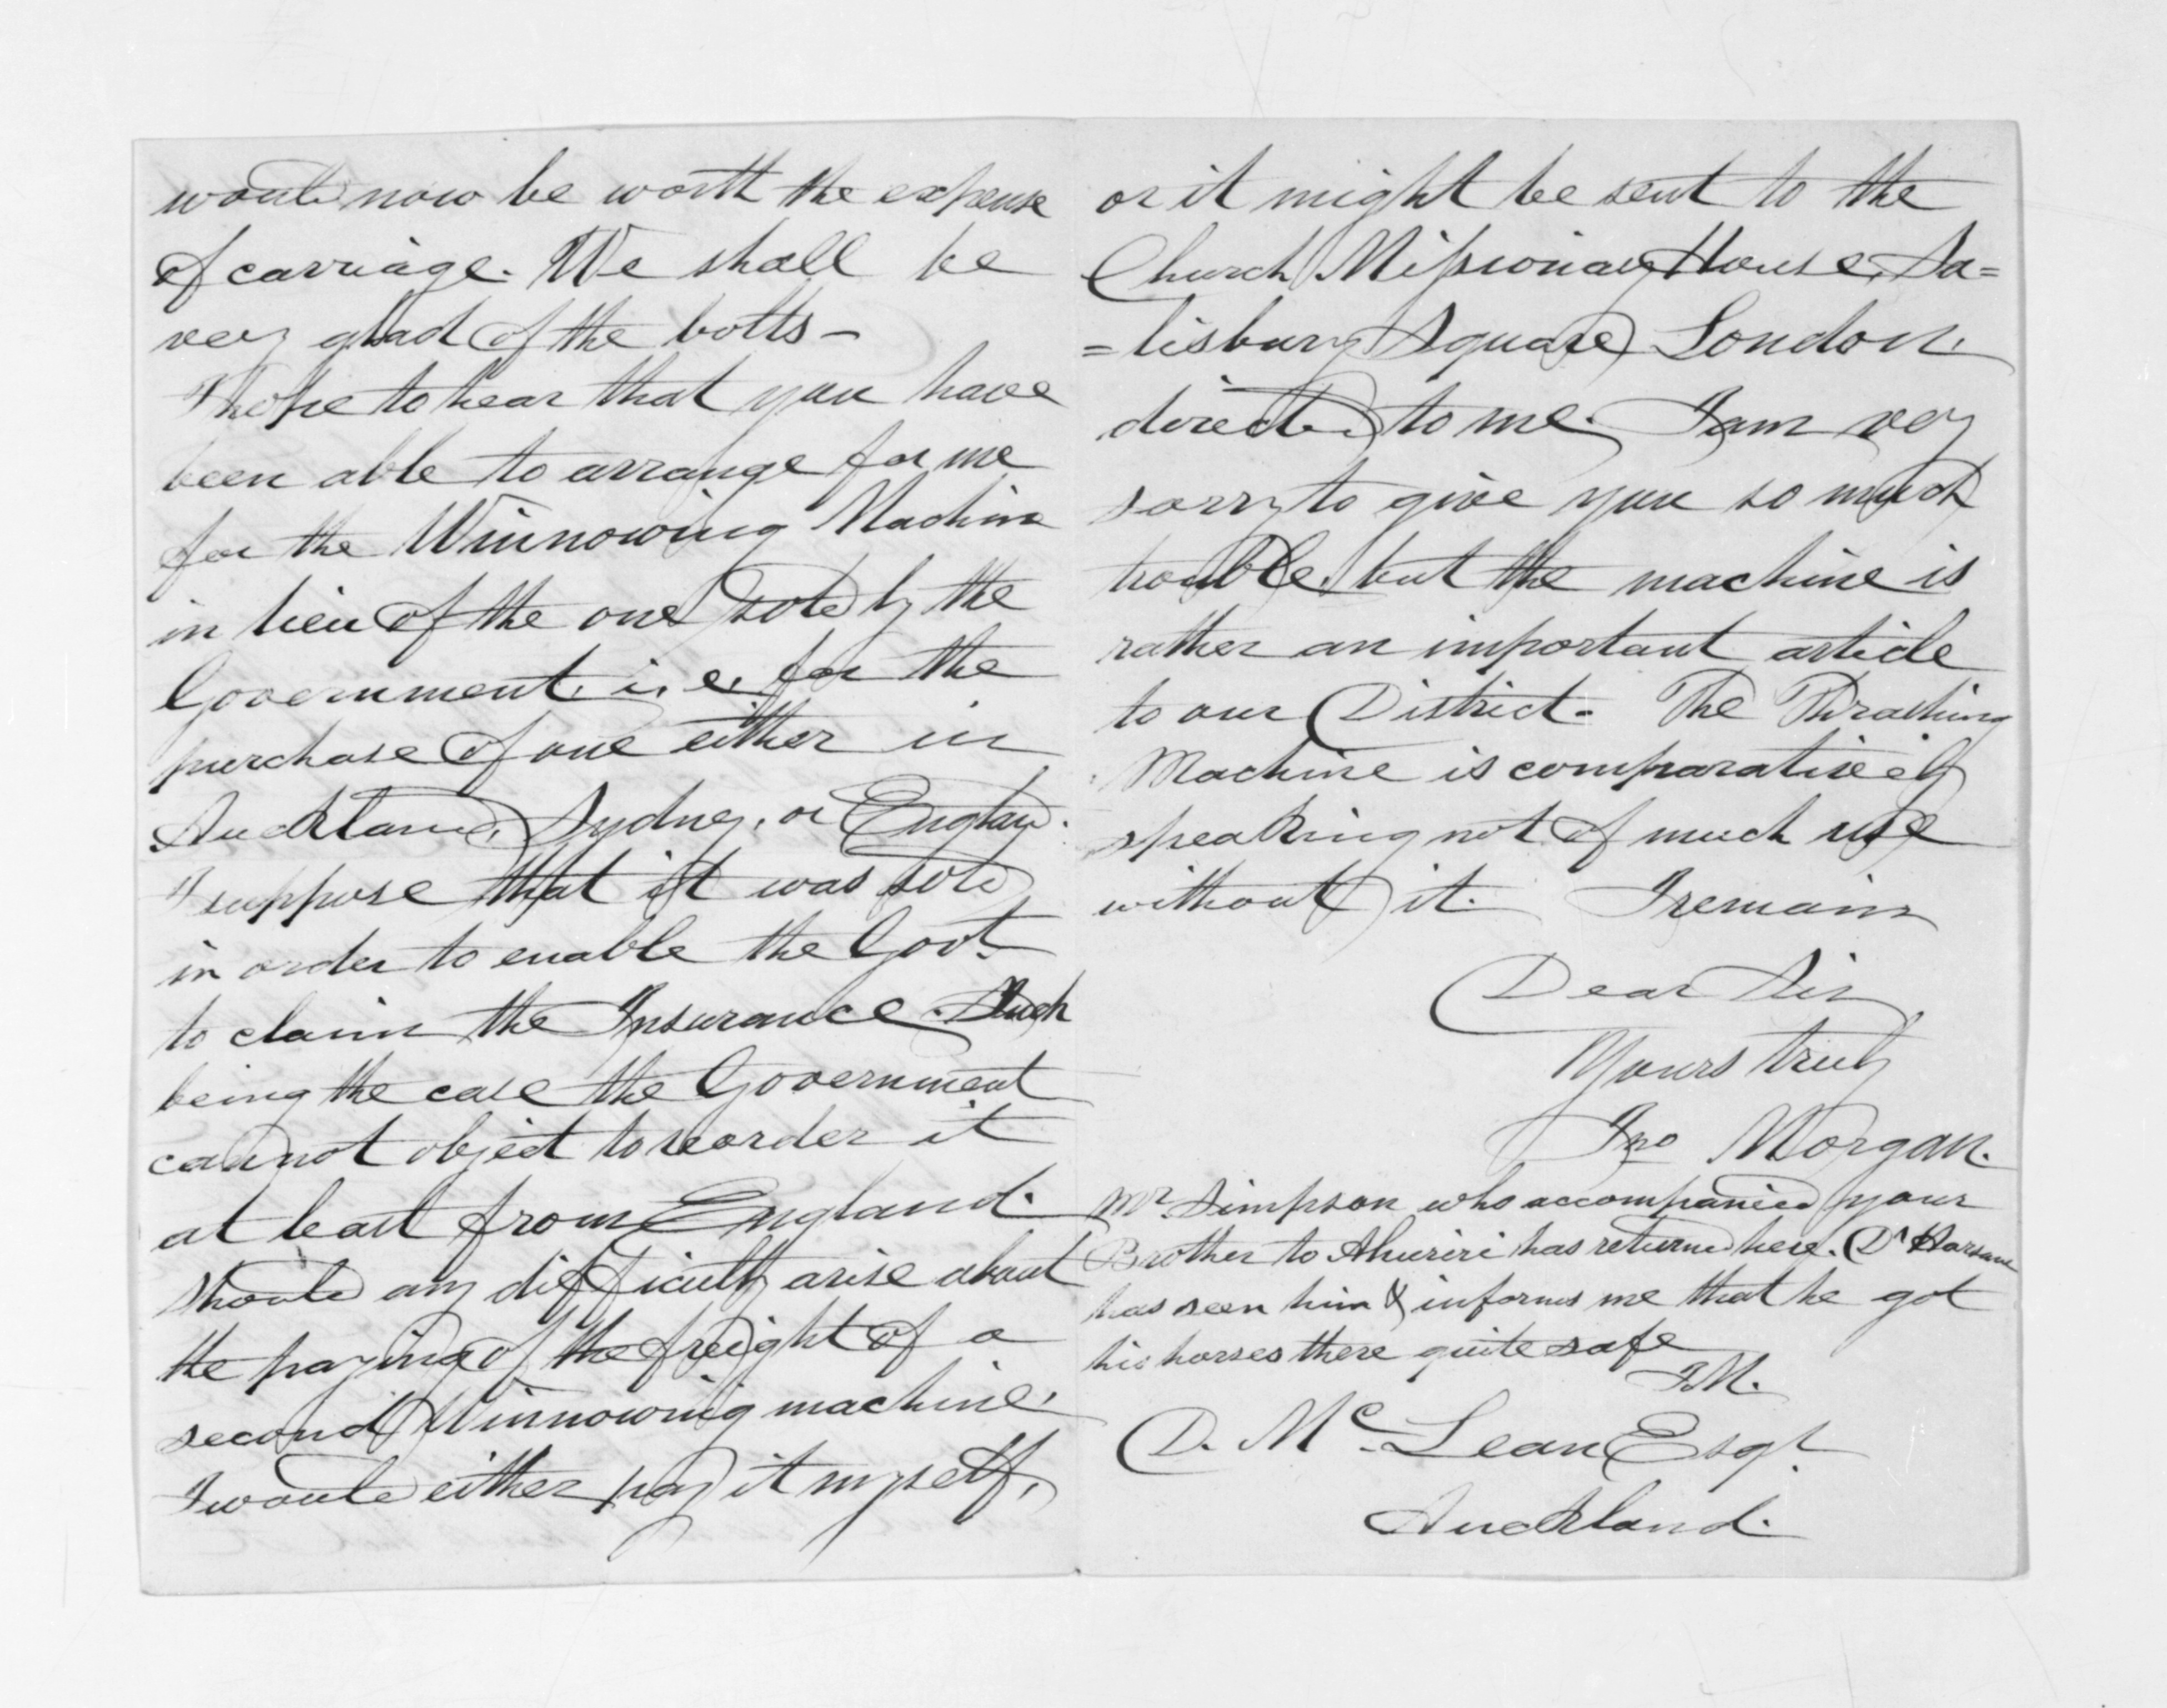 would now be worth the expense
of carriage. We shall be
very glad of the bolts -
I hope to hear that you have
been able to arrange for me
for the Winnowing Machine
in lieu of the one sold by the
Government, i. e. for the
purchase of one either in
Auckland, Sydney, or England.
I suppose that it was sold
in order to enable the Govt.
to claim the Insurance. Such
being the case the Government
cannot object to reorder it
at least from England.
Should any difficulty arise about
the paying of the freight of a
second Winnowing machine,
I would either pay it myself,
or it might be sent to the
Church Missionary House, Sa=
=lisbury Square, London.
directed to me. I am very
sorry to give you so much
trouble, but the machine is
rather an important article
to our District. The Thrashing
Machine is comparatively
speaking not of much use
without it. I remain
Dear Sir
Yours truly
Jno Morgan.
Mr. Simpson who accompanied your
Brother to Ahuriri has returned here. Dr Harsant
has seen him & informs me that he got
his horses there quite safe
J.M.
D. McLean Esqr.
Auckland.